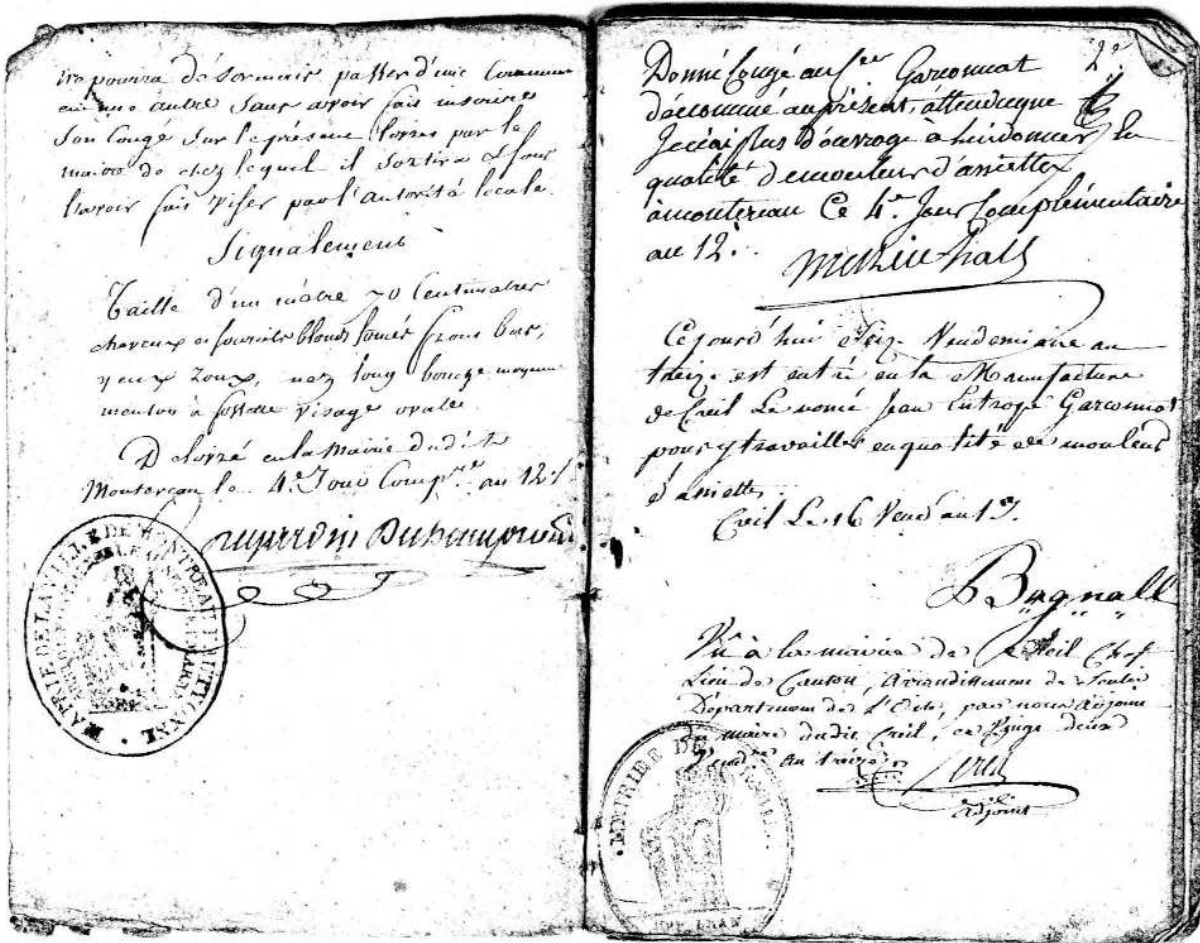 ne pourra désormais passer d'une Commune
en une autre sans avoir fait inscrire
son Congé sur le présent livret par le
maitre de chez lequel il sortira & sans
l'avoir fait viser par l'autorité locale.
Signalement
Taille d'un mètre 70 Centimètres
cheveux et sourcils blonds foncés front bas,
yeux roux, nez long bouche moyenne
menton à fossette visage ovale.
Délivré en la Mairie dudit
Montereau le 4e. Jour Comp.re an 12 ./.
MAIRIE DE LA VILLE DE MONTREAU FAUT YONNE
2e.
Donné Congé au Ser Garconnat
dénommé au présent, attendu que
Je n'ai plus d'ouvrage à lui donner en la
qualité de mouleur d'assiettes
à montereau Ce 4e. Jour Complémentaire
an 12.
Ce jourd'hui Seize Vendemiaire an
treize est entré en la Manufacture
de Creil Le nomé Jean Eutrope Garconnat
pour y travailler en qualité de mouleur
d'assiettes.
Creil Le 16 Vend. an 13.
Bagnall
Vû à la mairie de Creil Chef
Lieu de Canton, Arrondissement de Senlis
Département de L'Oise, par nous Adjoint
du maire dudit Creil, ce Vingt deux
Vend.re An treize
adjoint
MAIRIE DE CREIL